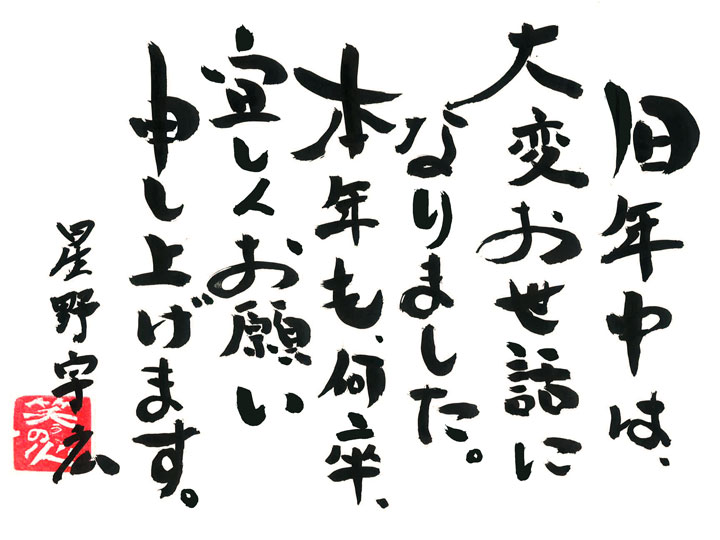 旧年中は、
大変お世話に
なりました。
本年も、何卒、
宜しくお願い
申し上げます。
星野字広
笑の